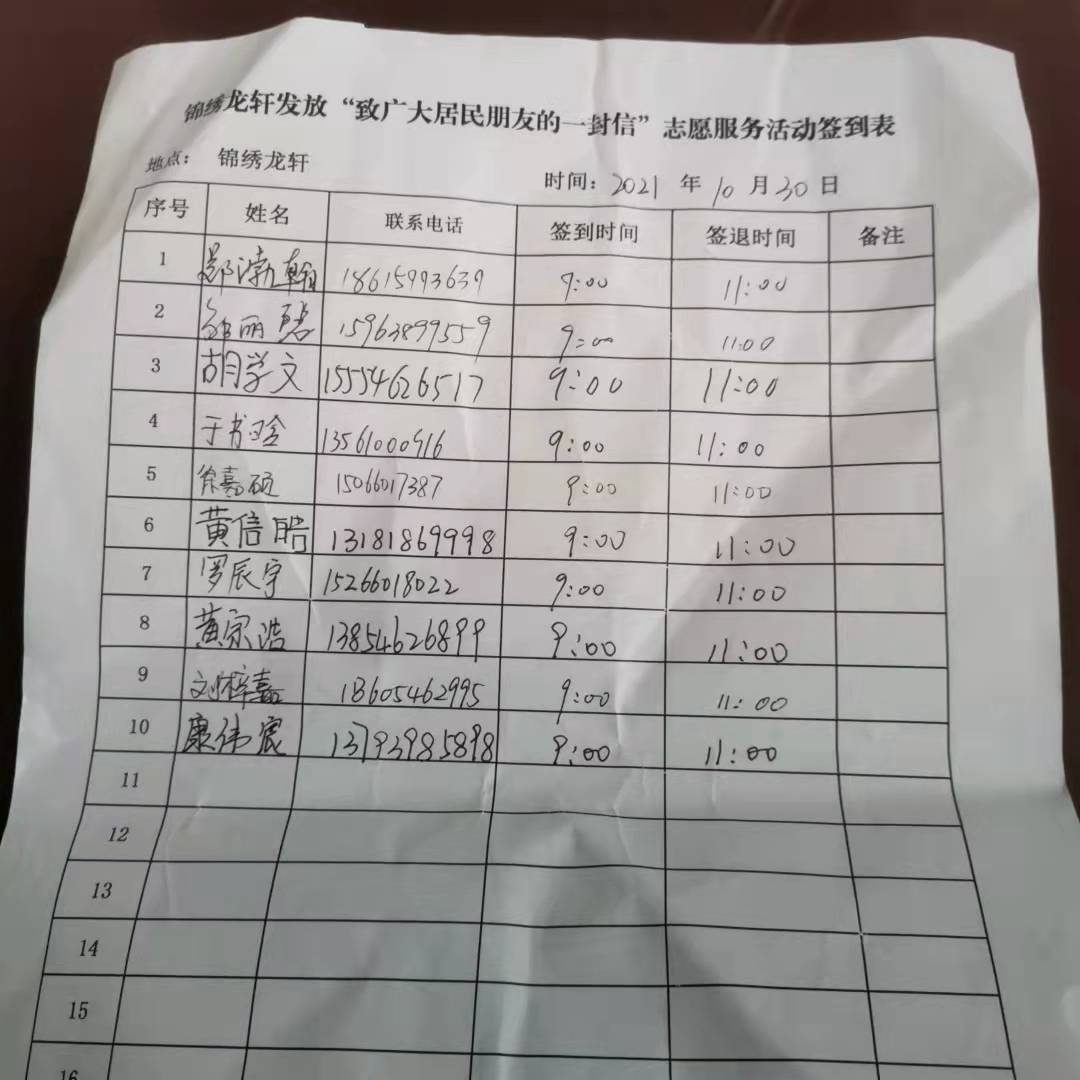 锦绣龙轩发放“致广大居民朋友的一封信”志愿服务活动签到表
地点： 锦绣龙轩 时间：2021 年 10 月 30 日
序号 姓名 联系电话 签到时间 签退时间 备注
1 郑渤翰 18615993639 9:00 11:00
2 15963899559 9:00 11:00
3 胡学文 15554626517 9:00 11:00
4 于书晗 13561000916 9:00 11:00
5 徐嘉硕 15066017387 9:00 11:00
6 黄信皓 13181869998 9:00 11:00
7 罗辰宇 15266018022 9:00 11:00
8 黄宗浩 13854626899 9:00 11:00
9 刘梓嘉 18605462995 9:00 11:00
10 康伟宸 13793985898 9:00 11:00
11
12
13
14
15
16